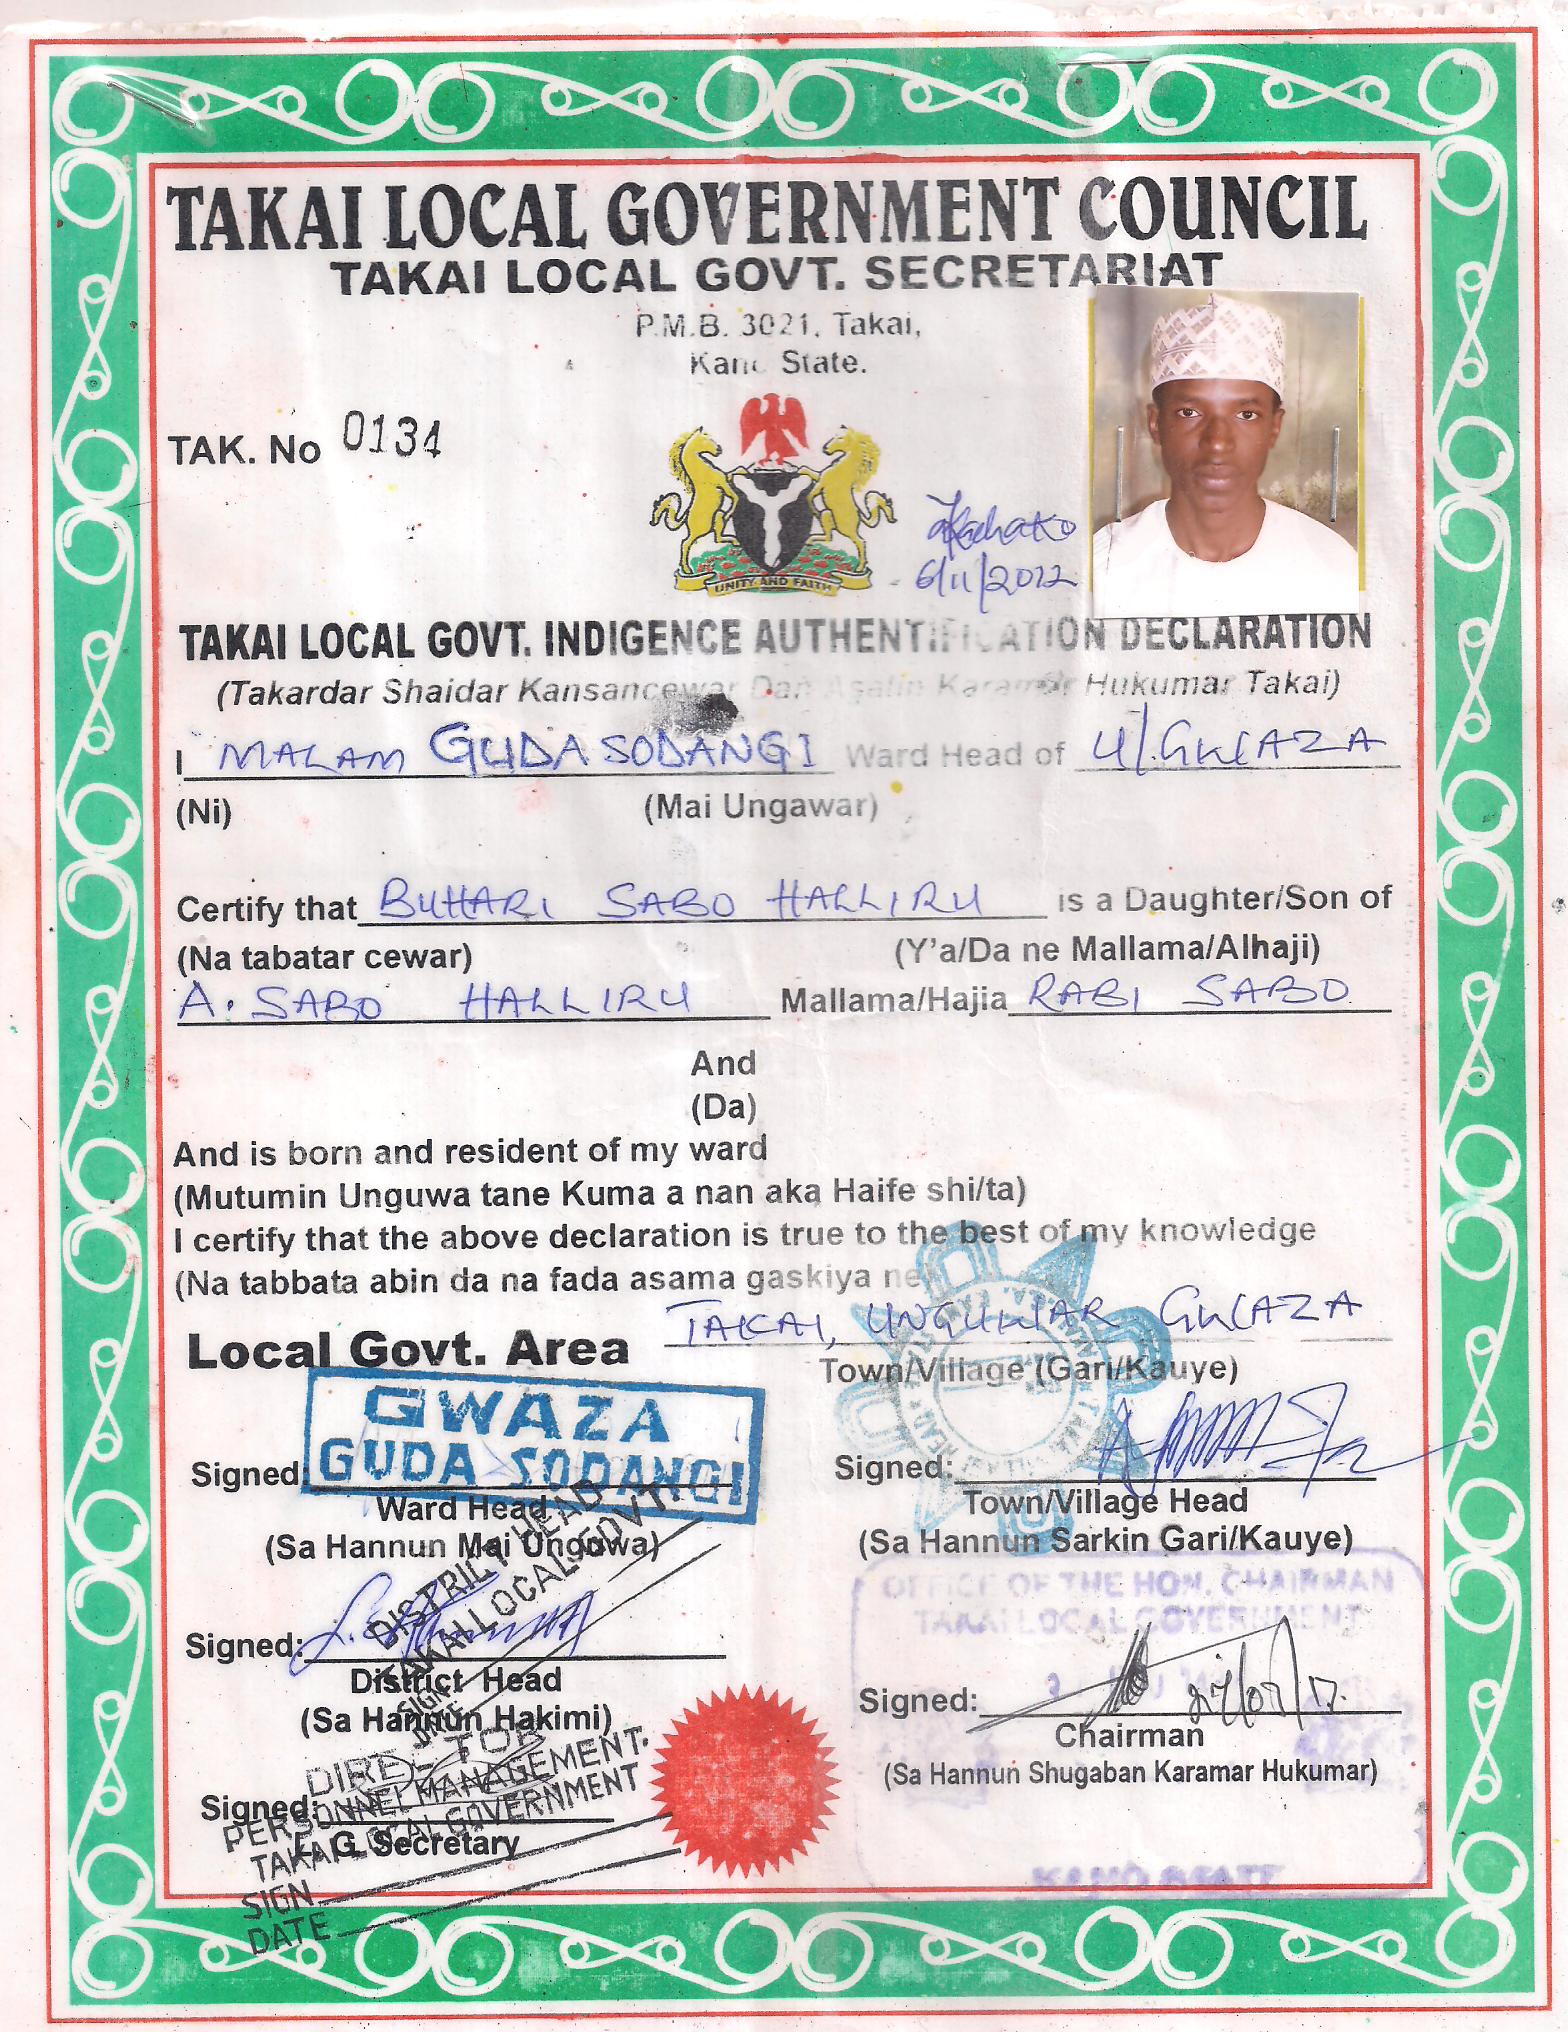 TAKAI LOCAL GOVERNMENT COUNCIL
TAKAI LOCAL GOVT. SECRETARIAT
P.M.B. 3021, Takai,
Kano State.
TAK. No 0134
UNITY AND FAITH
6/11/2012
TAKAI LOCAL GOVT. INDIGENCE AUTHENTIFICATION DECLARATION
(Takardar Shaidar Kansancewar Dan Asalin Karamar Hukumar Takai)
I MALAM GUDA SODANGI Ward Head of U/GWAZA
(Ni) (Mai Ungawar)
Certify that BUHARI SABO HALLIRU is a Daughter/Son of
(Na tabatar cewar) (Y'a/Da ne Mallama/Alhaji)
A. SABO HALLIRU Mallama/Hajia RABI SABO
And
(Da)
And is born and resident of my ward
(Mutumin Unguwa tane Kuma a nan aka Haife shi/ta)
I certify that the above declaration is true to the best of my knowledge
(Na tabbata abin da na fada asama gaskiya ne)
Local Govt. Area TAKAI, UNGUWAR GWAZA
Town/Village (Gari/Kauye)
GWAZA
GUDA SODANGI
Signed: Signed:
Ward Head Town/Village Head
(Sa Hannun Mai Unguwa) (Sa Hannun Sarkin Gari/Kauye)
DISTRICT HEAD
TAKAI LOCAL GOVT.
SIGN
DATE
OFFICE OF THE HON. CHAIRMAN
TAKAI LOCAL GOVERNMENT
Signed: Signed: 27/07/17.
District Head Chairman
(Sa Hannun Hakimi) (Sa Hannun Shugaban Karamar Hukumar)
DIRECTOR
PERSONNEL MANAGEMENT.
TAKAI LOCAL GOVERNMENT
SIGN
DATE
Signed:
L. G. Secretary
KANO STATE